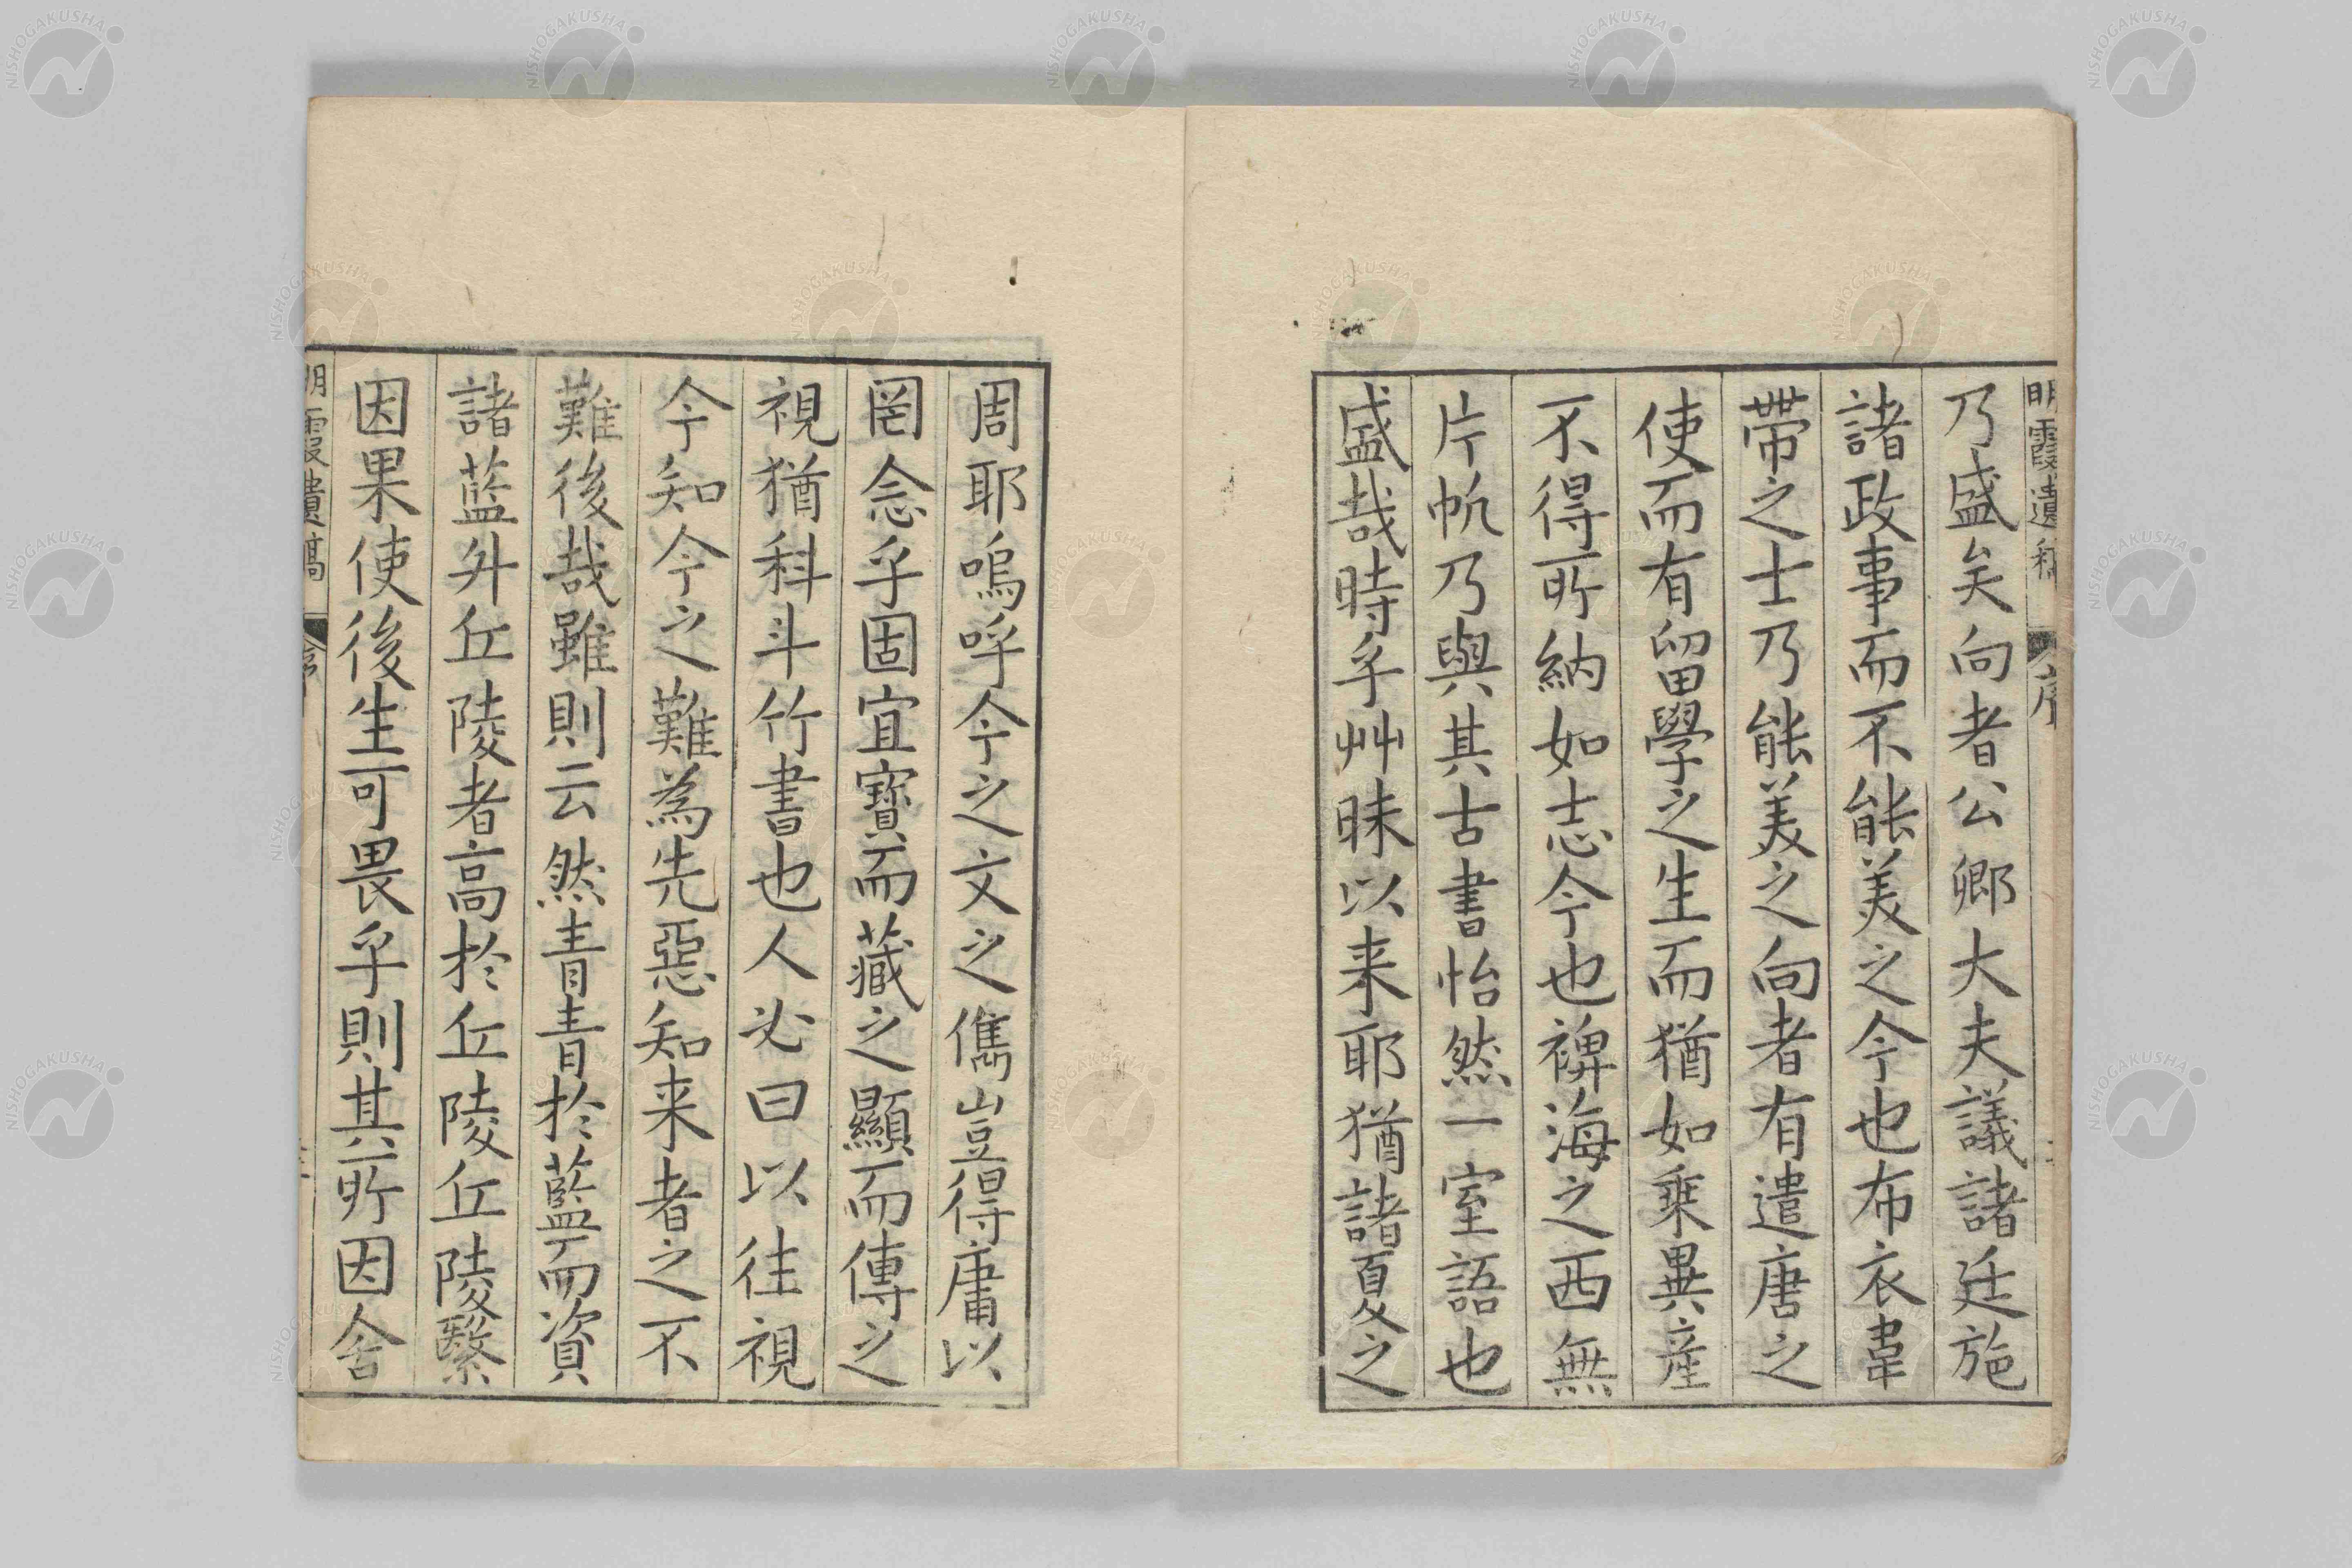 明霞遺稿 序
乃盛矣向者公卿大夫議諸廷施
諸政事而不能美之今也布衣韋
帶之士乃能美之向者有遣唐之
使而有留學之生而猶如乘異產
不得所納如志今也裨海之西無
片帆乃與其古書怡然一室語也
盛哉時乎艸昧以来耶猶諸夏之
周耶嗚呼今之文之雋豈得庸以
罔念乎固宜寶而藏之顯而傳之
視猶科斗竹書也人必曰以往視
今知今之難為先惡知来者之不
難後哉雖則云然青青於藍而資
諸藍外丘陵者高於丘陵丘陵繄
因果使後生可畏乎則其所因舍
明霞遺稿 序
NISHOGAKUSHA